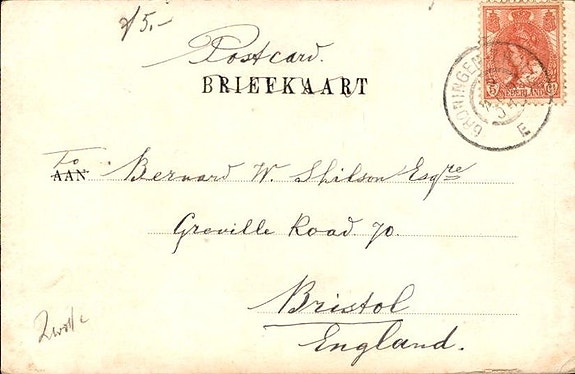 75,-
Postcard.
BRIEFKAART
GRONINGEN
5 NEDERLAND
E
To
AAN Bernard W. Shilson Esqre
Greville Road 70.
Bristol
England.
Zwolle